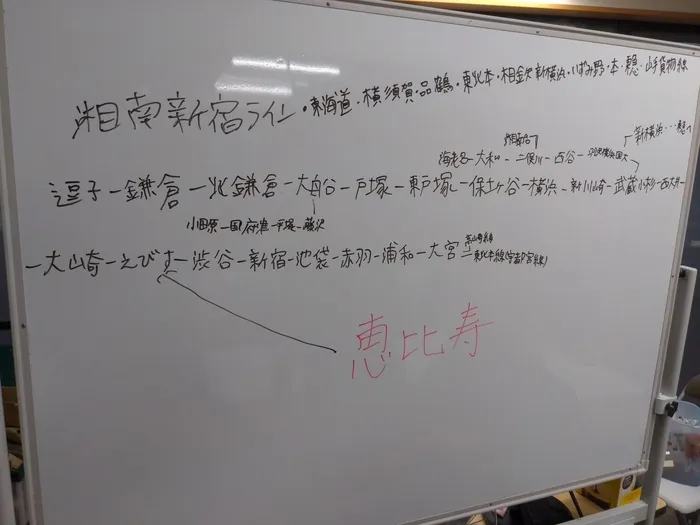 湘南新宿ライン・東海道・横須賀・品鶴・東北本・相鉄新横浜・いずみ野・本・東急・山手貨物線
新横浜…東急へ
海老名-大和-二俣川-西谷-羽沢横浜国大
逗子-鎌倉-北鎌倉-大船-戸塚-東戸塚-保土ヶ谷-横浜-新川崎-武蔵小杉-西大井-
小田原-国府津-平塚-藤沢
-大山奇-えびす-渋谷-新宿-池袋-赤羽-浦和-大宮
高崎線
東北本線(宇都宮線)
恵比寿